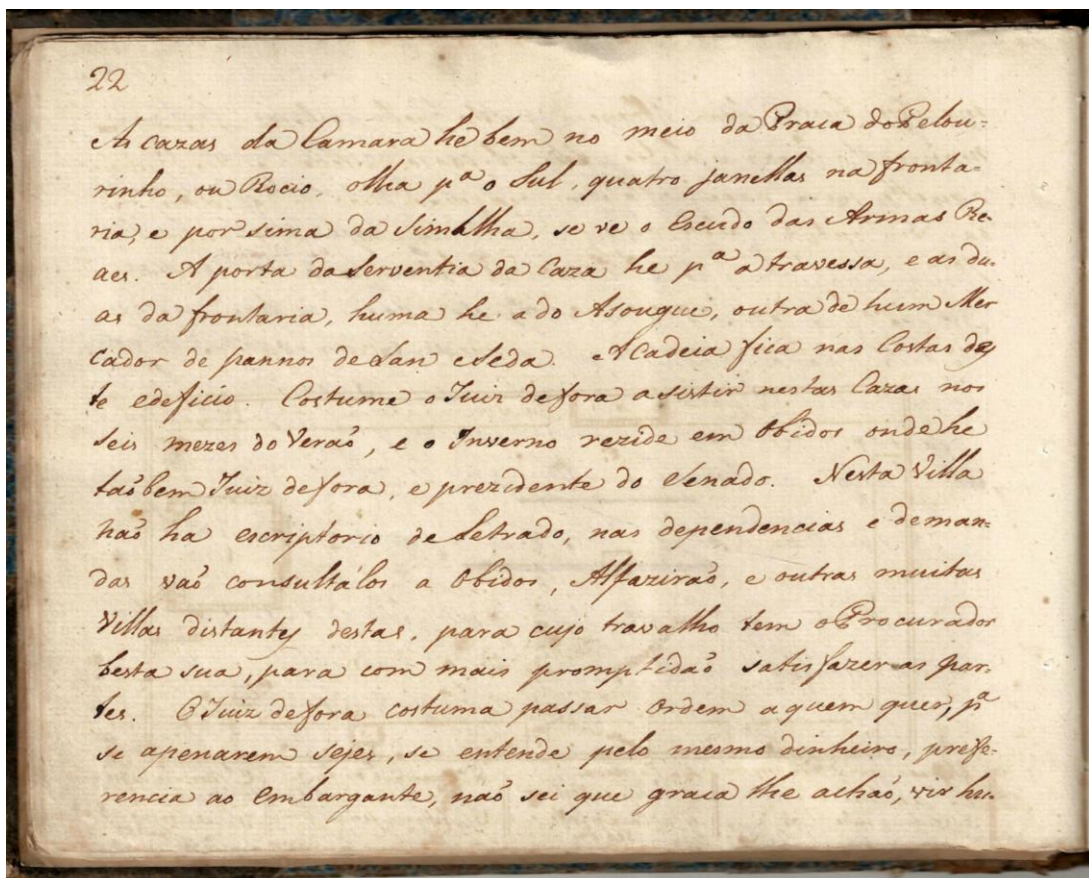 22
As cazas da Camara he bem no meio da Praca do Pelou=
rinho, ou Rocio, olha pª o Sul, quatro janellas na fronta=
ria, e por sima da Simalha, se ve o Escudo das Armas Re=
aes. A porta da Serventia da Caza he pª a travessa, e as du=
as da frontaria, huma he a do Asougue, outra de hum Mer
cador de pannos de Lan e Seda. A Cadeia fica nas Costas des
te edeficio. Costume o Juiz de fora a sistir nestas Cazas nos
seis mezes do Veraõ, e o Inverno rezide em Obidos onde he
taõbem Juiz de fora, e prezidente do Senado. Nesta Villa
naõ ha escriptorio de Letrado, nas dependencias e deman=
das vaõ consultálos a Obidos, Alfaziraõ, e outras muitas
Villas distantes destas, para cujo travalho tem o Procurador
besta sua, para com mais promptidaõ satisfazer as par=
tes. O Juiz de fora costuma passar Ordem a quem quer, pª
se apenarem sejes, se entende pelo mesmo dinheiro, prefe=
rencia ao Embargante, naõ sei que graca lhe achaõ, vir hu=